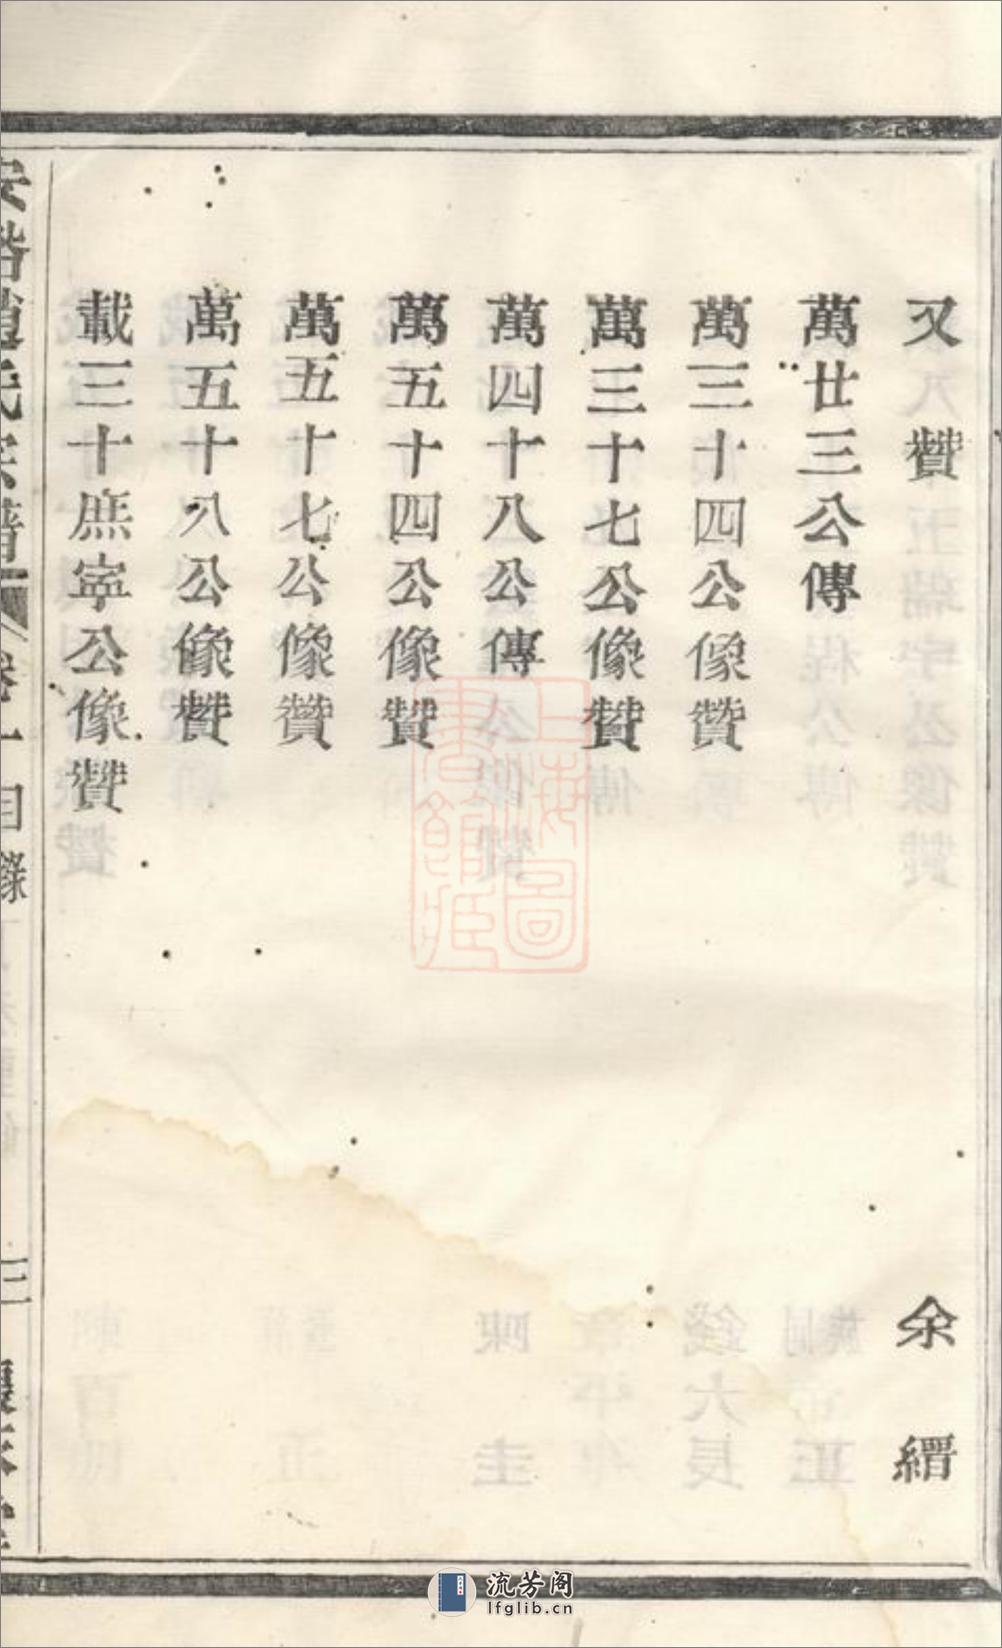 又贊 余縉
萬廿三公傳
萬三十四公像贊
萬三十七公像贊
萬四十八公傳
萬五十四公像贊
萬五十七公像贊
萬五十八公像贊
載三十庶寧公像贊
趙氏宗譜 卷一 目錄 三
上海圖書館藏
流芳阁
lfglib.cn